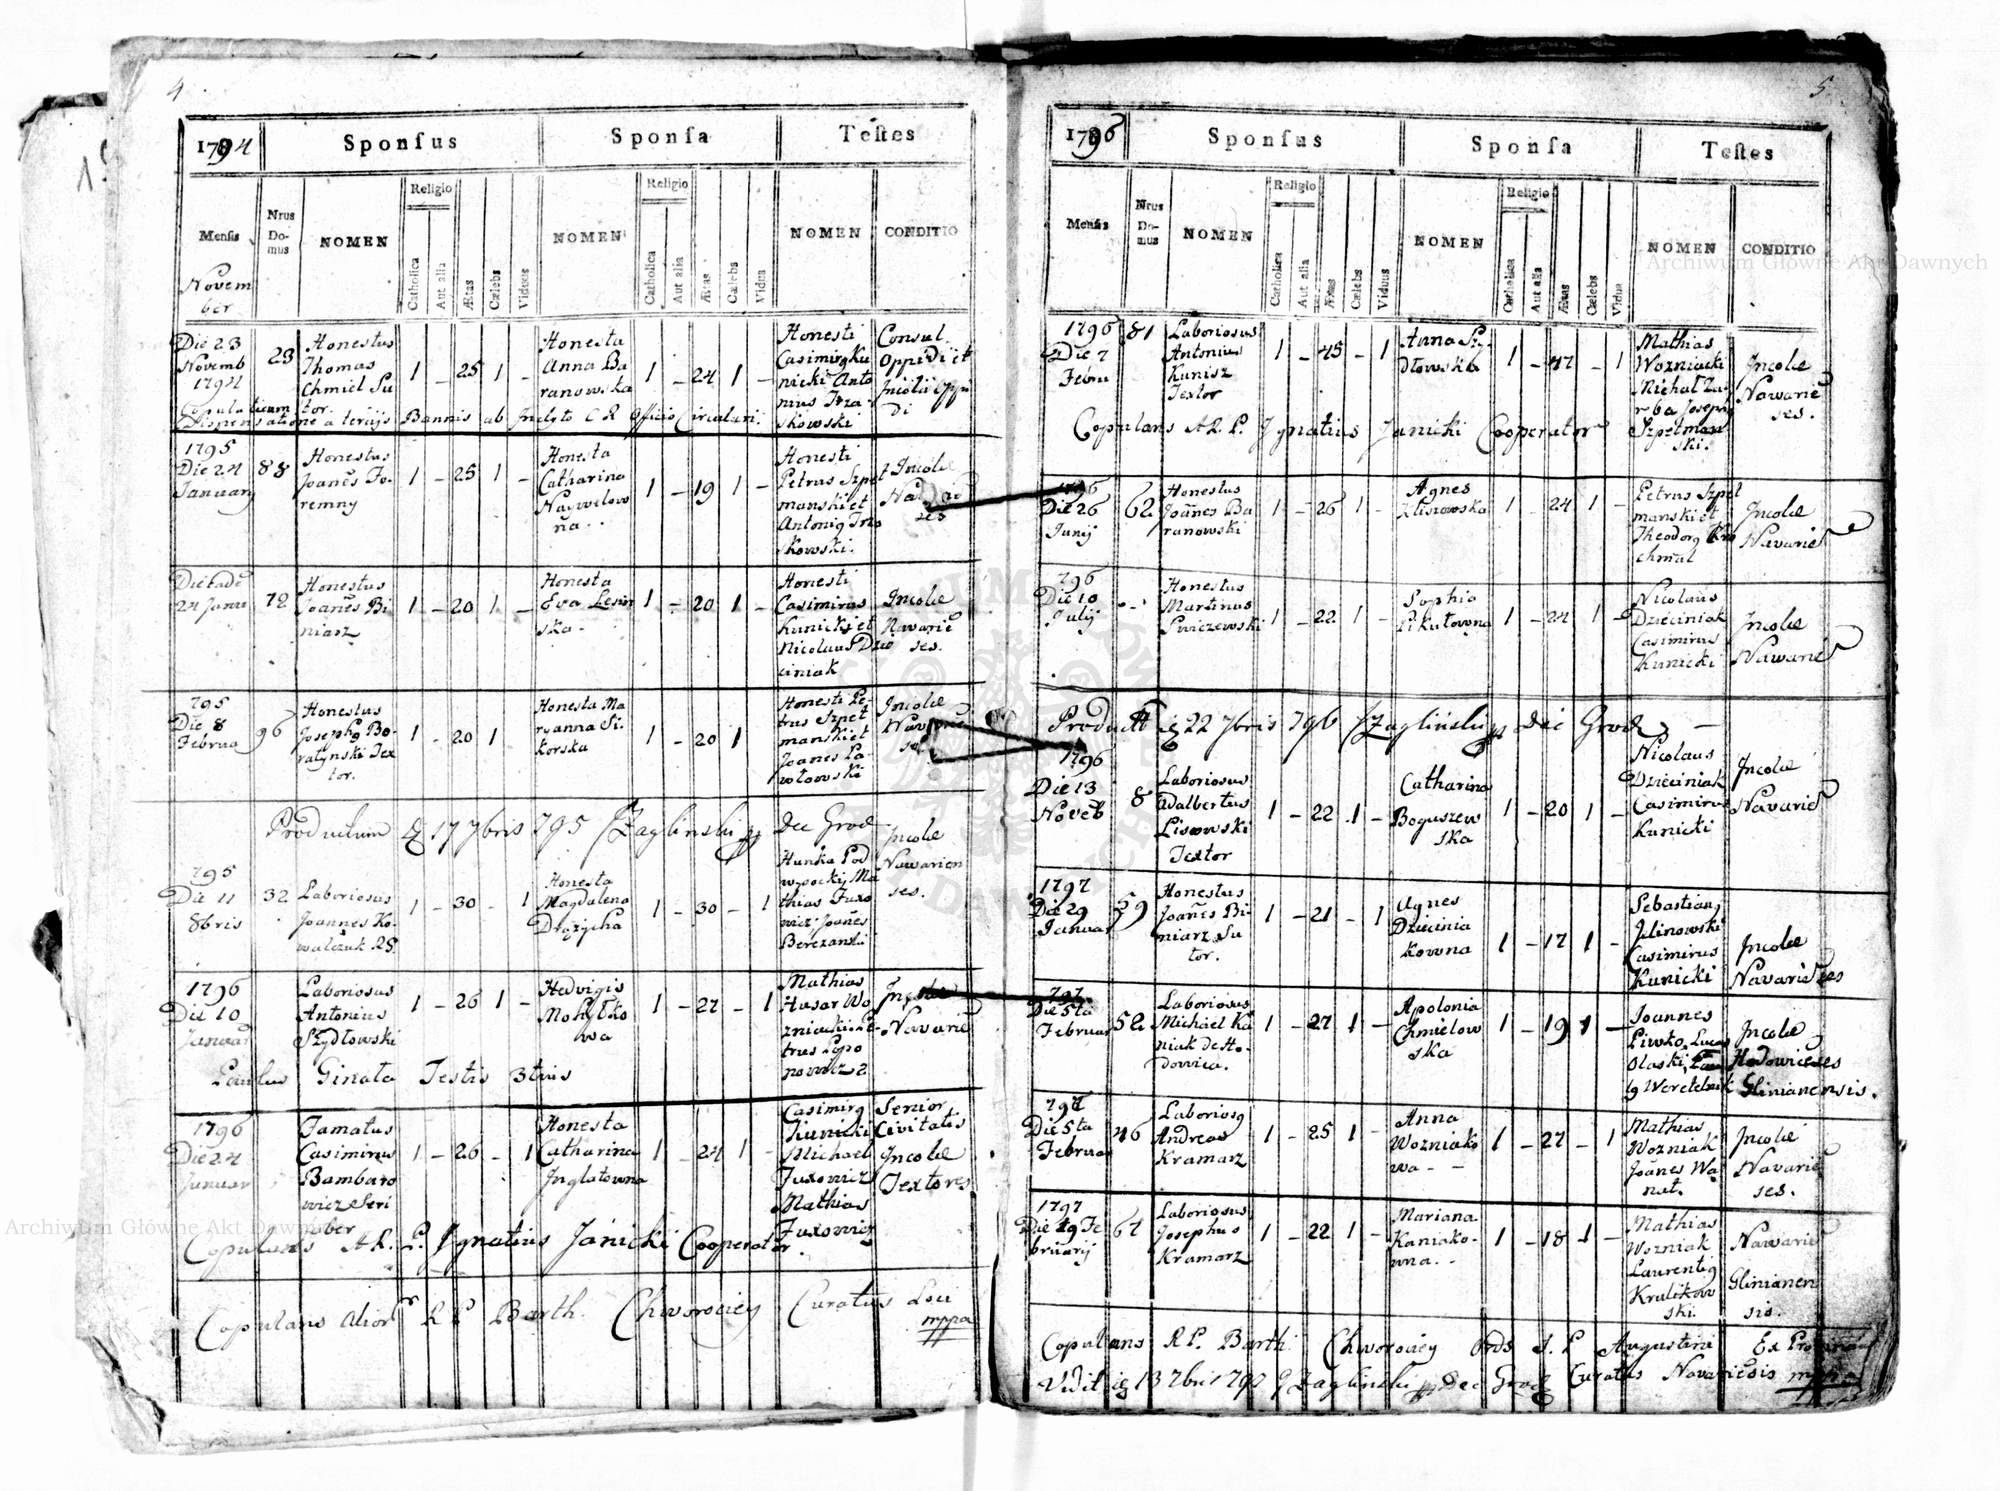 4
1794 Sponſus Sponſa Teſtes
Menſis Nrus Domus NOMEN Religio Catholica Aut alia Ætas Cælebs Viduus NOMEN Religio Catholica Aut alia Ætas Cælebs Vidua NOMEN CONDITIO
Novem
ber
Die 23
Novemb
1794
23
Honestus
Thomas
Chmiel Su
tor.
1 – 25 1 –
Honesta
Anna Ba
ranowska
1 – 24 1 –
Honesti
Casimirg Ku
nicki Anto
nius Trza
skowski
Consul
Oppidi et
Incola Oppi
di
Dispensatione a tertijs Bannis ab Inclyto C R Officio Circulari
1795
Die 24
January
88
Honestus
Joanes Fo
remny
1 – 25 1 –
Honesta
Catharina
1 – 19 1 –
Honesti
Petrus Szpet
manski et
Antonig Trza
skowski.
Incole
Die eade
24 Janu
72
Honestus
Joanes Bi
niarz
1 – 20 1 –
Honesta
Eva
ska
1 – 20 1 –
Honesti
Casimirus
Kunicki et
Nicolaus Dzie
ciniak
Incole
Navarie
ses.
795
Die 8
Februa
96
Honestus
Josephg Bo-
ratynski Tex
tor.
1 – 20 1
Honesta Ma
ryanna Si
korska
1 – 20 1
Honesti Pe
trus Szpet
manski et
Joanes Pa-
wlowski
Incole
Productum 17 7bris 795 Zaglinski Dec Grod
795
Die 11
8bris
32
Laboriosus
Joannes Ko-
walczuk
1 – 30 – 1
Honesta
Magdalena
1 – 30 – 1
Hunka Pod
wysocki, Ma
thias Juxo
wicz, Joanes
Berezanski
Incole
Nawarien
ses.
1796
Die 10
Januar
Laboriosus
Antonius
Szydłowski
1 – 26 1 –
Hedvigis
1 – 27 – 1
Mathias
Husar Wo
zniacki Pe-
trus Popo
nowicz 2
Navarie
Paulus Ginala Testis 3tius
1796
Die 24
Januar
Famatus
Casimirus
Bambaro
wicz Scri
ber
1 – 26 – 1
Honesta
Catharina
Inglotowna
1 – 24 1 –
Casimirg
Kunicki
Michael
Juxowicz
Mathias
Juxowicz
Senior
Civitatis
Incole
Textores
Copulans A.R. P. Ignatius Janicki Cooperator
Copulans alior R P Barth. Chworociey Curatus Loci
mppa
5
1796 Sponſus Sponſa Teſtes
Menſis Nrus Domus NOMEN Religio Catholica Aut alia Ætas Cælebs Viduus NOMEN Religio Catholica Aut alia Ætas Cælebs Vidua NOMEN CONDITIO
1796
Die 7
Febru
81
Laboriosus
Antonius
Kunisz
Textor
1 – 45 – 1
Anna Szy
dłowska
1 – 47 – 1
Mathias
Wozniacki
Michał Za
rba Joseph
Szpetman
ski.
Incole
Nawarie
ses.
Copulans A R. P. Ignatius Janicki Cooperator
1796
Die 26
Junij
62
Honestus
Joanes Ba
ranowski
1 – 26 1 –
Agnes
Klisowska
1 – 24 1 –
Petrus Szpet
manski et
Theodorg Kro
chmal
Incole
Navarie
796
Die 10
Julij
Honestus
Martinus
Swiczewski
1 – 22 1 –
Sophia
Pikułowna
1 – 24 1 –
Nicolaus
Dzieciniak
Casimirus
Kunicki
Incole
Nawarie
Product 22 7bris 796 Zaglinski Dec Grod
1796
Die 13
Noveb
8
Laboriosus
Adalbertus
Lisowski
Textor
1 – 22 1 –
Catharina
Boguszew
ska
1 – 20 1 –
Nicolaus
Dzieciniak
Casimirus
Kunicki
Incole
Navarie
1797
Die 29
Januar
59
Honestus
Joanes Bi-
niarz Su
tor.
1 – 21 – 1
Agnes
Dziecinia
kowna
1 – 17 1 –
Sebastiang
Jelinowski
Casimirus
Kunicki
Incole
Navarieses
797
Die 5ta
Februar
52
Laboriosus
Michael Ka
niak de Ho-
dowica.
1 – 27 1 –
Apolonia
Chmielow
ska
1 – 19 1 –
Joannes
Piwko, Lucas
Olaski,
g Weretelnik
Incole
Hodowiceses
Glinianensis.
797
Die 5ta
Februar
46
Laboriosg
Andreas
Kramarz
1 – 25 1 –
Anna
Wozniako
wa – –
1 – 27 – 1
Mathias
Wozniak
Joanes Wa
nat.
Incole
Navarie
ses.
1797
Die 19 Fe
bruarij
67
Laboriosus
Josephus
Kramarz
1 – 22 1 –
Mariana
Kaniako-
wna.
1 – 18 1 –
Mathias
Wozniak
Laurentig
Krulikow
ski.
Nawarie
Glinianen
sis.
Copulans R P. Barth. Chworociey Ords S. P. Augustini Ex Provincia
Vidit 13 7bris 797 Zaglinski Dec Grod Curatus Navariesis mppa
Archiwum Główne Akt Dawnych
Archiwum Główne Akt Dawnych